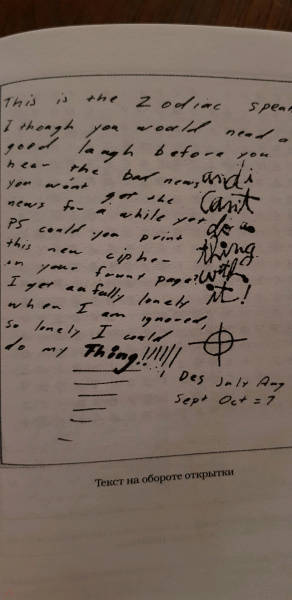 This is the Zodiac speak
I though you would need a
good laugh before you
hear the bad news
you won't get the
news for a while yet
PS could you print
this new cipher
on your frunt page?
I get awfully lonely
when I am ignored,
so lonely I could
do my Thing!!!!!!
and i
can't
do a
thing
with
it!
Des July Aug
Sept Oct = 7
Текст на обороте открытки